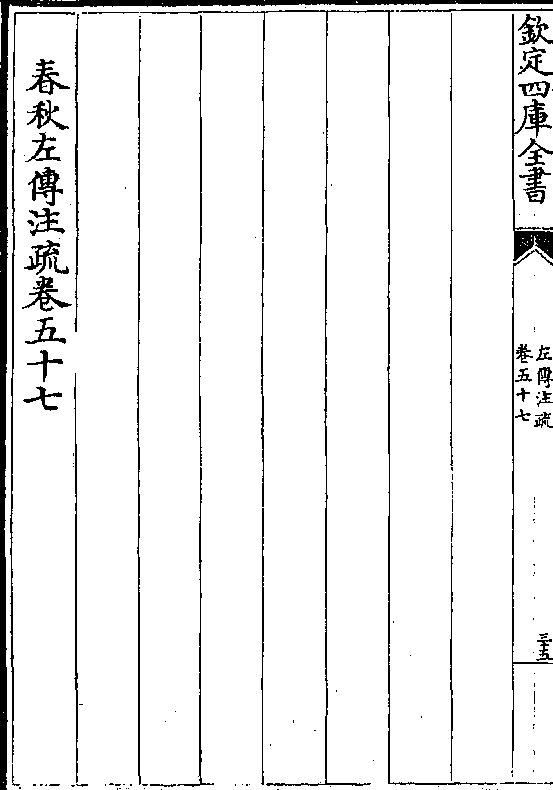 欽定四庫全書
左傳注疏
卷五十七
三十五
春秋左傳注疏卷五十七